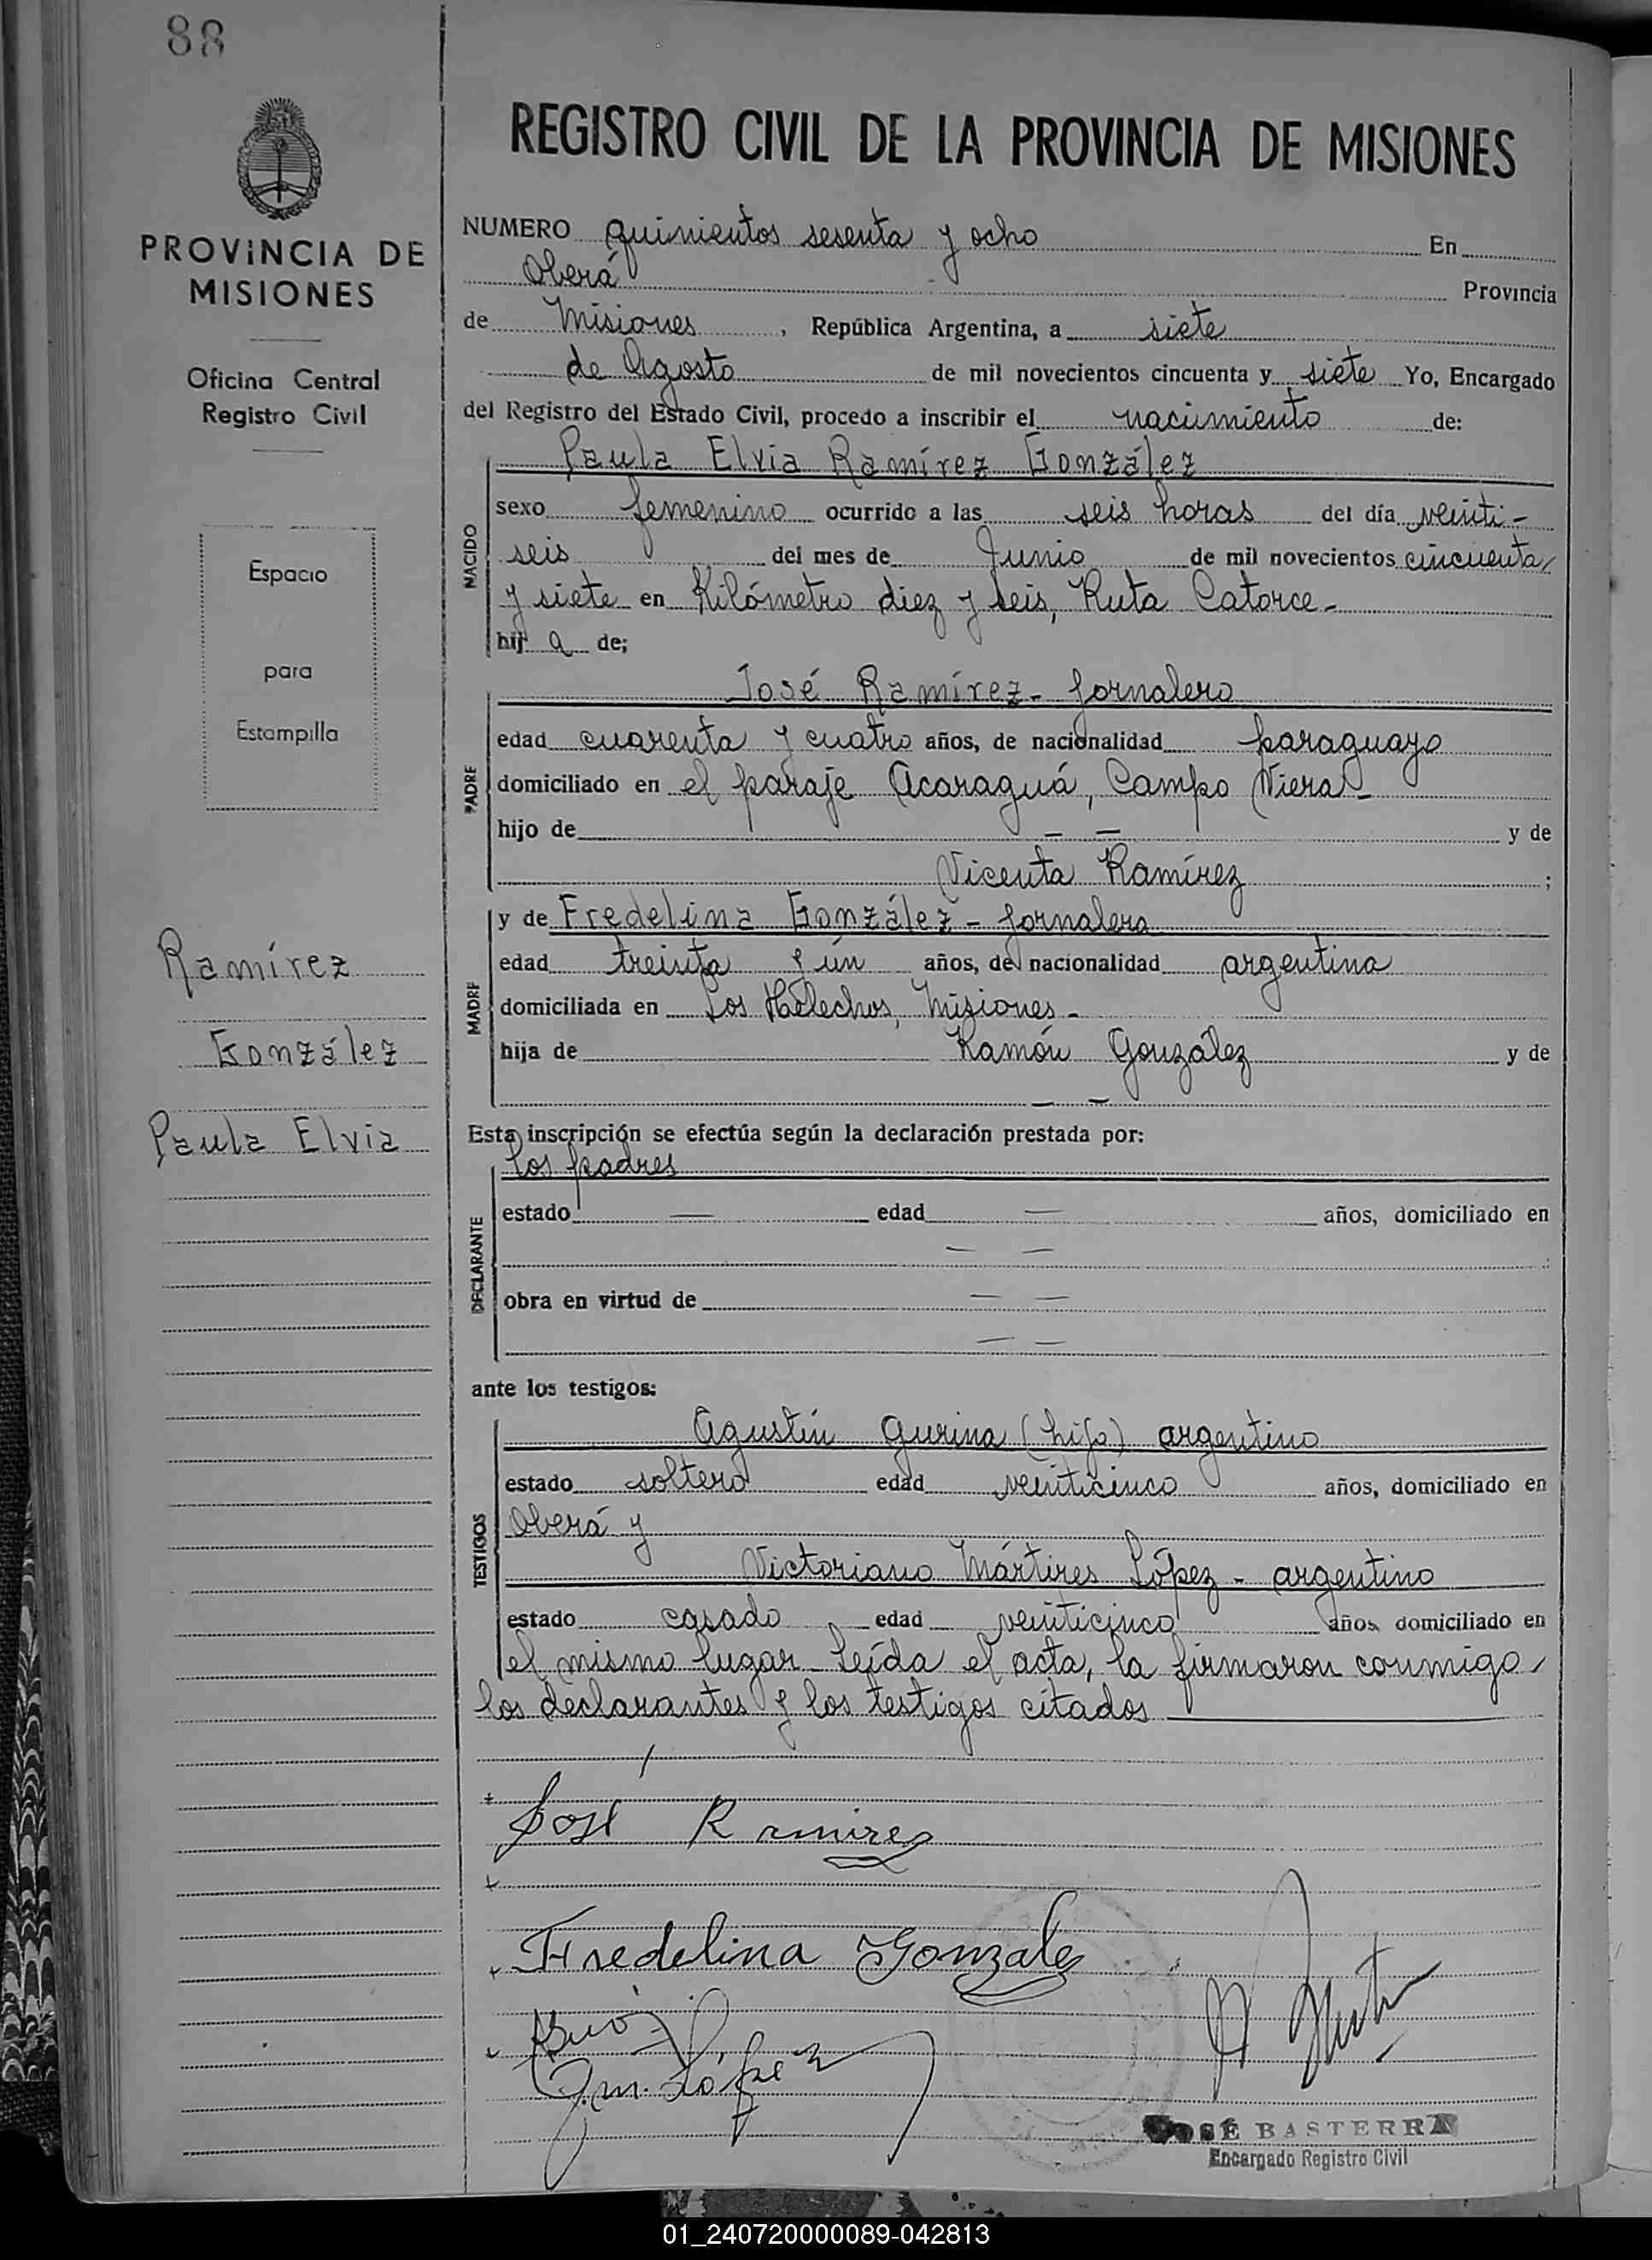 88
PROVINCIA DE
MISIONES
Oficina Central
Registro Civil
Espacio
para
Estampilla
Ramírez
González
Paula Elvia
REGISTRO CIVIL DE LA PROVINCIA DE MISIONES
NUMERO quinientos sesenta y ocho En
Oberá Provincia
de Misiones, República Argentina, a siete
de Agosto de mil novecientos cincuenta y siete Yo, Encargado
del Registro del Estado Civil, procedo a inscribir el nacimiento de:
Paula Elvia Ramírez González
NACIDO
sexo femenino ocurrido a las seis horas del día veinti-
seis del mes de Junio de mil novecientos cincuenta
y siete en Kilómetro diez y seis, Ruta Catorce-
hij a de;
José Ramírez - jornalero
PADRE
edad cuarenta y cuatro años, de nacionalidad paraguayo
domiciliado en el paraje Acaraguá, Campo Viera-
hijo de — — y de
Vicenta Ramírez ;
y de Fredelina González - jornalera
MADRE
edad treinta y ún años, de nacionalidad argentina
domiciliada en Los Helechos, Misiones -
hija de Ramón González y de
— —
Esta inscripción se efectúa según la declaración prestada por:
los padres
DECLARANTE
estado — edad — años, domiciliado en
— —
obra en virtud de — —
— —
ante los testigos:
Agustín Gurina (hijo) argentino
TESTIGOS
estado soltero edad veinticinco años, domiciliado en
Oberá y
Victoriano Mártires López - argentino
estado casado edad veinticinco años, domiciliado en
el mismo lugar - Leída el acta, la firmaron conmigo
los declarantes y los testigos citados
José Ramirez
Fredelina Gonzalez
López
JOSÉ BASTERRA
Encargado Registro Civil
01_240720000089-042813